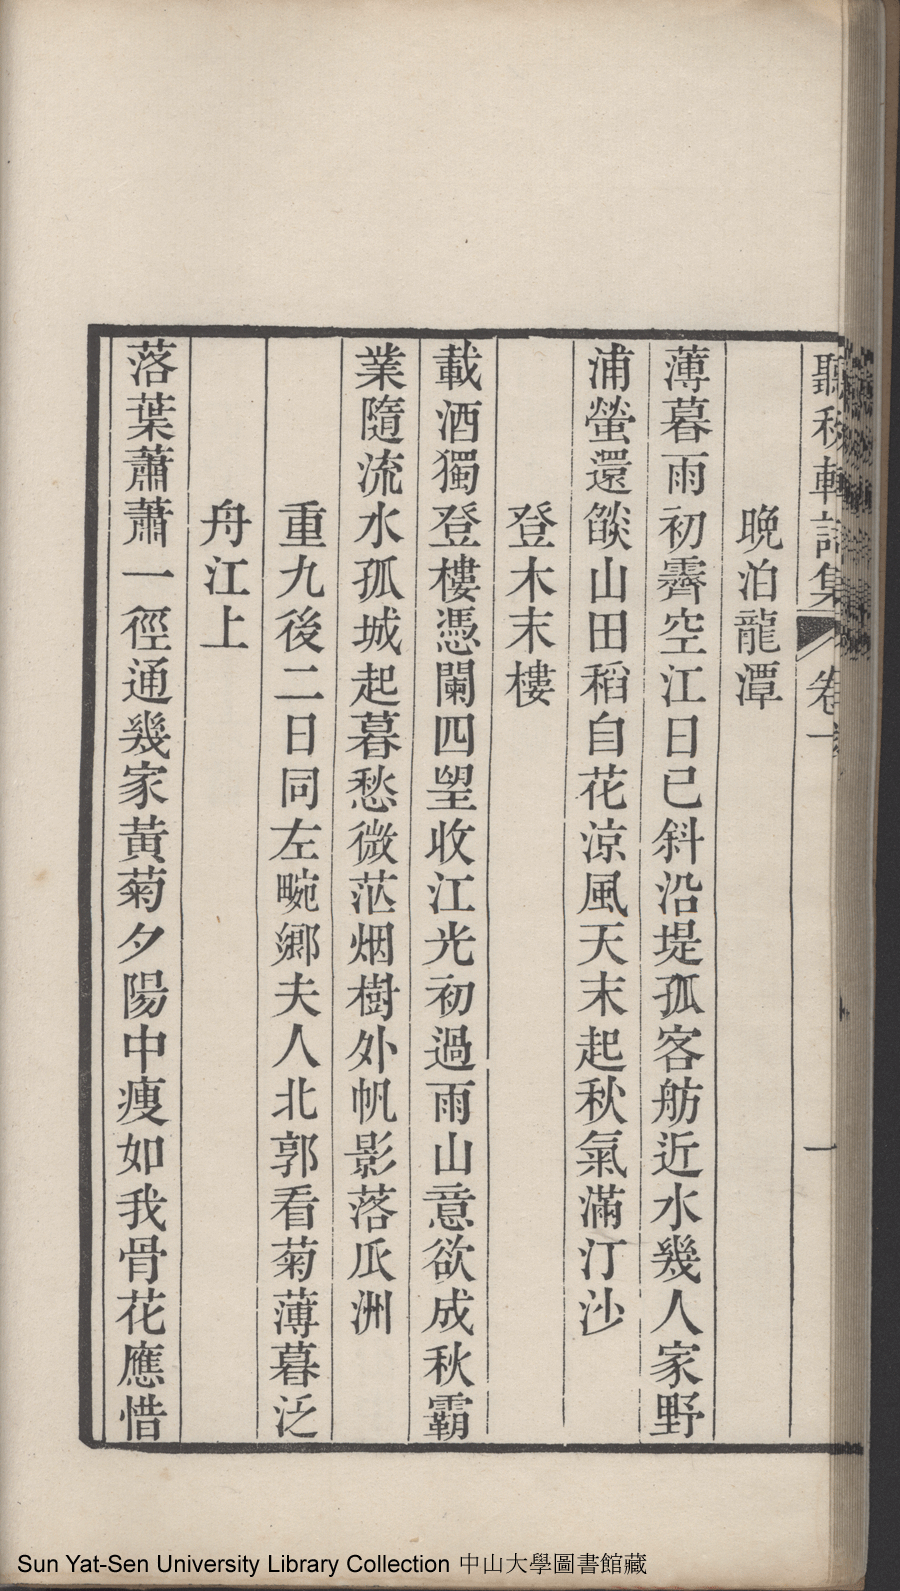 聽秋軒詩集 卷一 一
晚泊龍潭
薄暮雨初霽空江日已斜沿堤孤客舫近水幾人家野
浦螢還燄山田稻自花涼風天末起秋氣滿汀沙
登木末樓
載酒獨登樓憑闌四望收江光初過雨山意欲成秋霸
業隨流水孤城起暮愁微茫烟樹外帆影落瓜洲
重九後二日同左畹鄉夫人北郭看菊薄暮泛
舟江上
落葉蕭蕭一徑通幾家黃菊夕陽中瘦如我骨花應惜
Sun Yat-Sen University Library Collection 中山大學圖書館藏